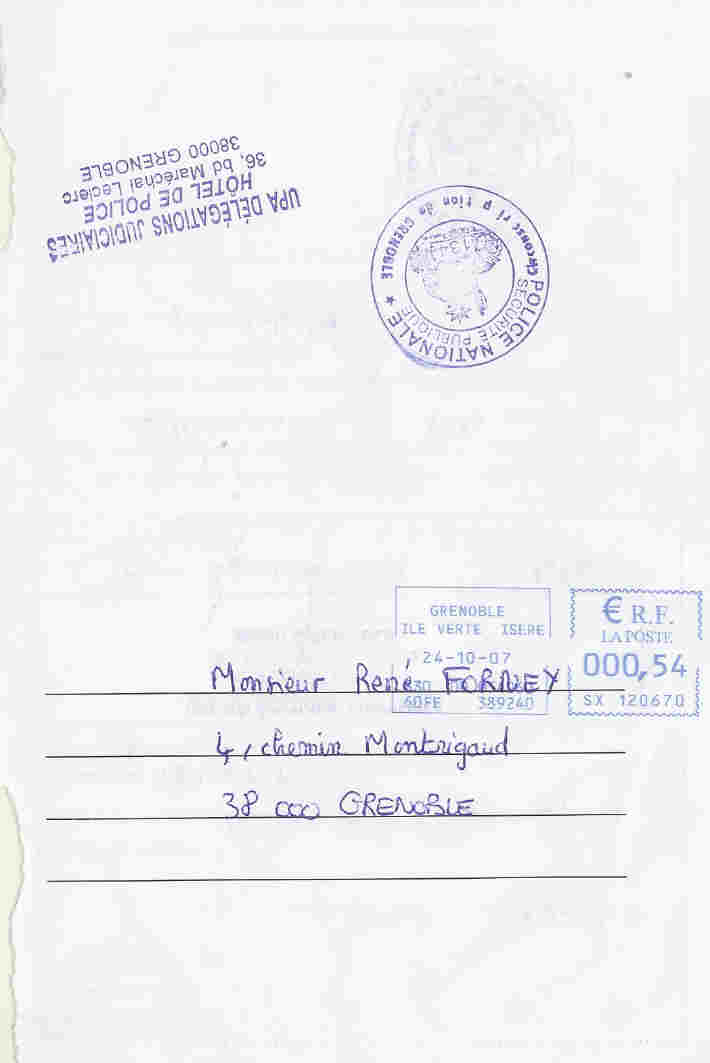 UPA DÉLÉGATIONS JUDICIAIRES
HÔTEL DE POLICE
36, bd Maréchal Leclerc
38000 GRENOBLE
POLICE NATIONALE ★
Circonscription de GRENOBLE
SÉCURITÉ PUBLIQUE
GRENOBLE
ILE VERTE ISERE
24-10-07
60FE 389240
€ R.F.
LA POSTE
000,54
SX 120670
Monsieur René FORNEY
4, chemin Montrigaud
38 000 GRENOBLE